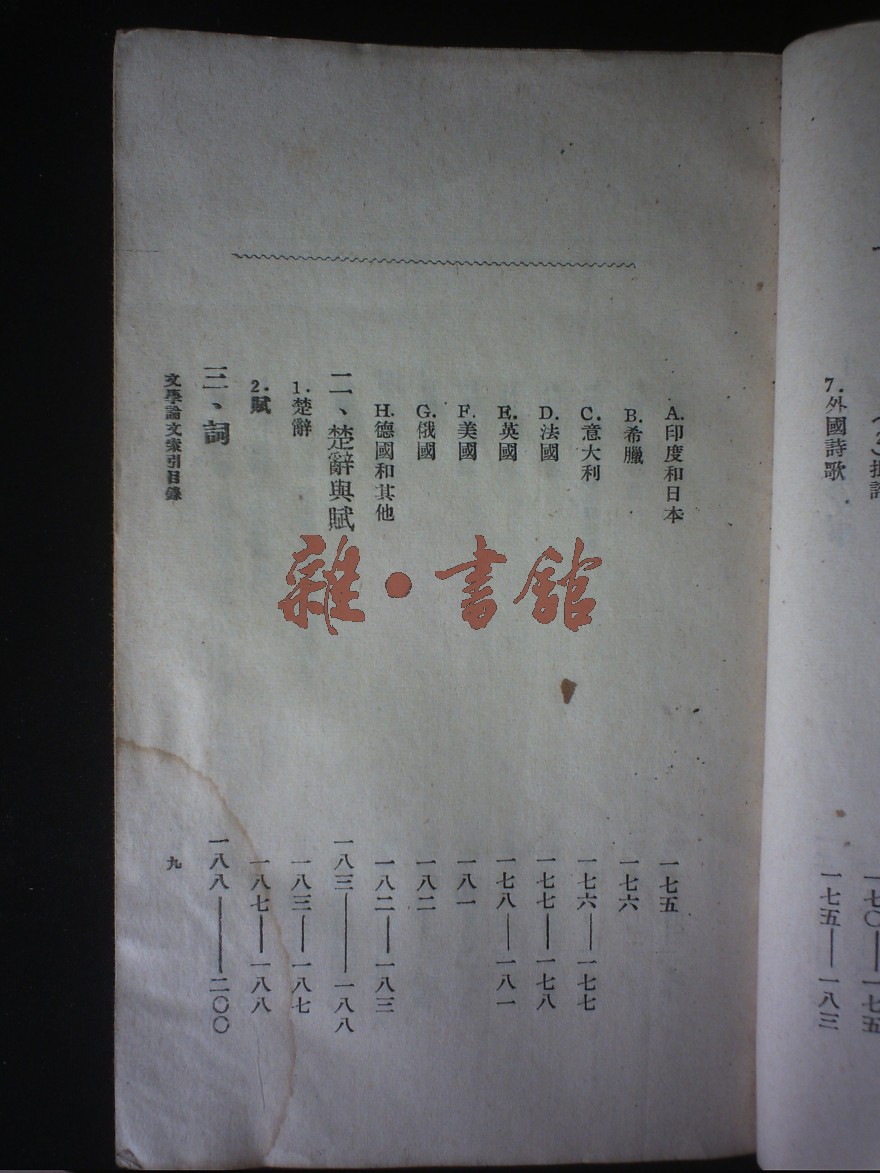 一七〇——一七五
7.外國詩歌 一七五——一八三
A.印度和日本 一七五
B.希臘 一七六
C.意大利 一七六——一七七
D.法國 一七七——一七八
E.英國 一七八——一八一
F.美國 一八一
G.俄國 一八二
H.德國和其他 一八二——一八三
二、楚辭與賦 一八三——一八八
1.楚辭 一八三——一八七
2.賦 一八七——一八八
三、詞 一八八——二〇〇
文學論文索引目錄 九
雜·書館